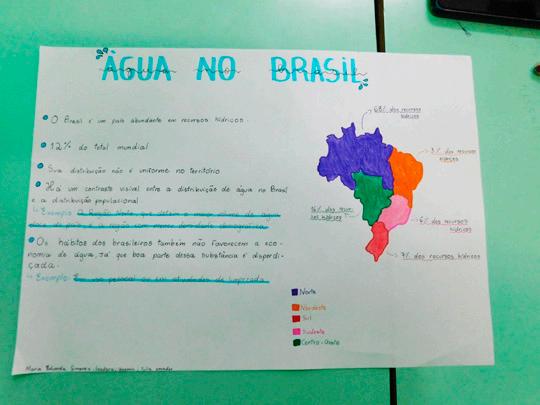 ÁGUA NO BRASIL
O Brasil é um país abundante em recursos hídricos.
12% do total mundial
Sua distribuição não é uniforme no território
Há um contraste visível entre a distribuição de água no Brasil
e a distribuição populacional.
Exemplo: A Região Norte que detém o maior volume de água
do país é a região com menor densidade demográfica
Os hábitos dos brasileiros também não favorecem a eco-
nomia de água, já que boa parte dessa substância é disperdi-
çada.
Exemplo: uso pessoal ou em atividades de limpeza
68% dos recursos
hídricos
3% dos recursos
hídricos
16% dos recur-
sos hídricos
6% dos recursos
hídricos
7% dos recursos hídricos
Norte
Nordeste
Sul
Sudeste
Centro-Oeste
Maria Eduarda